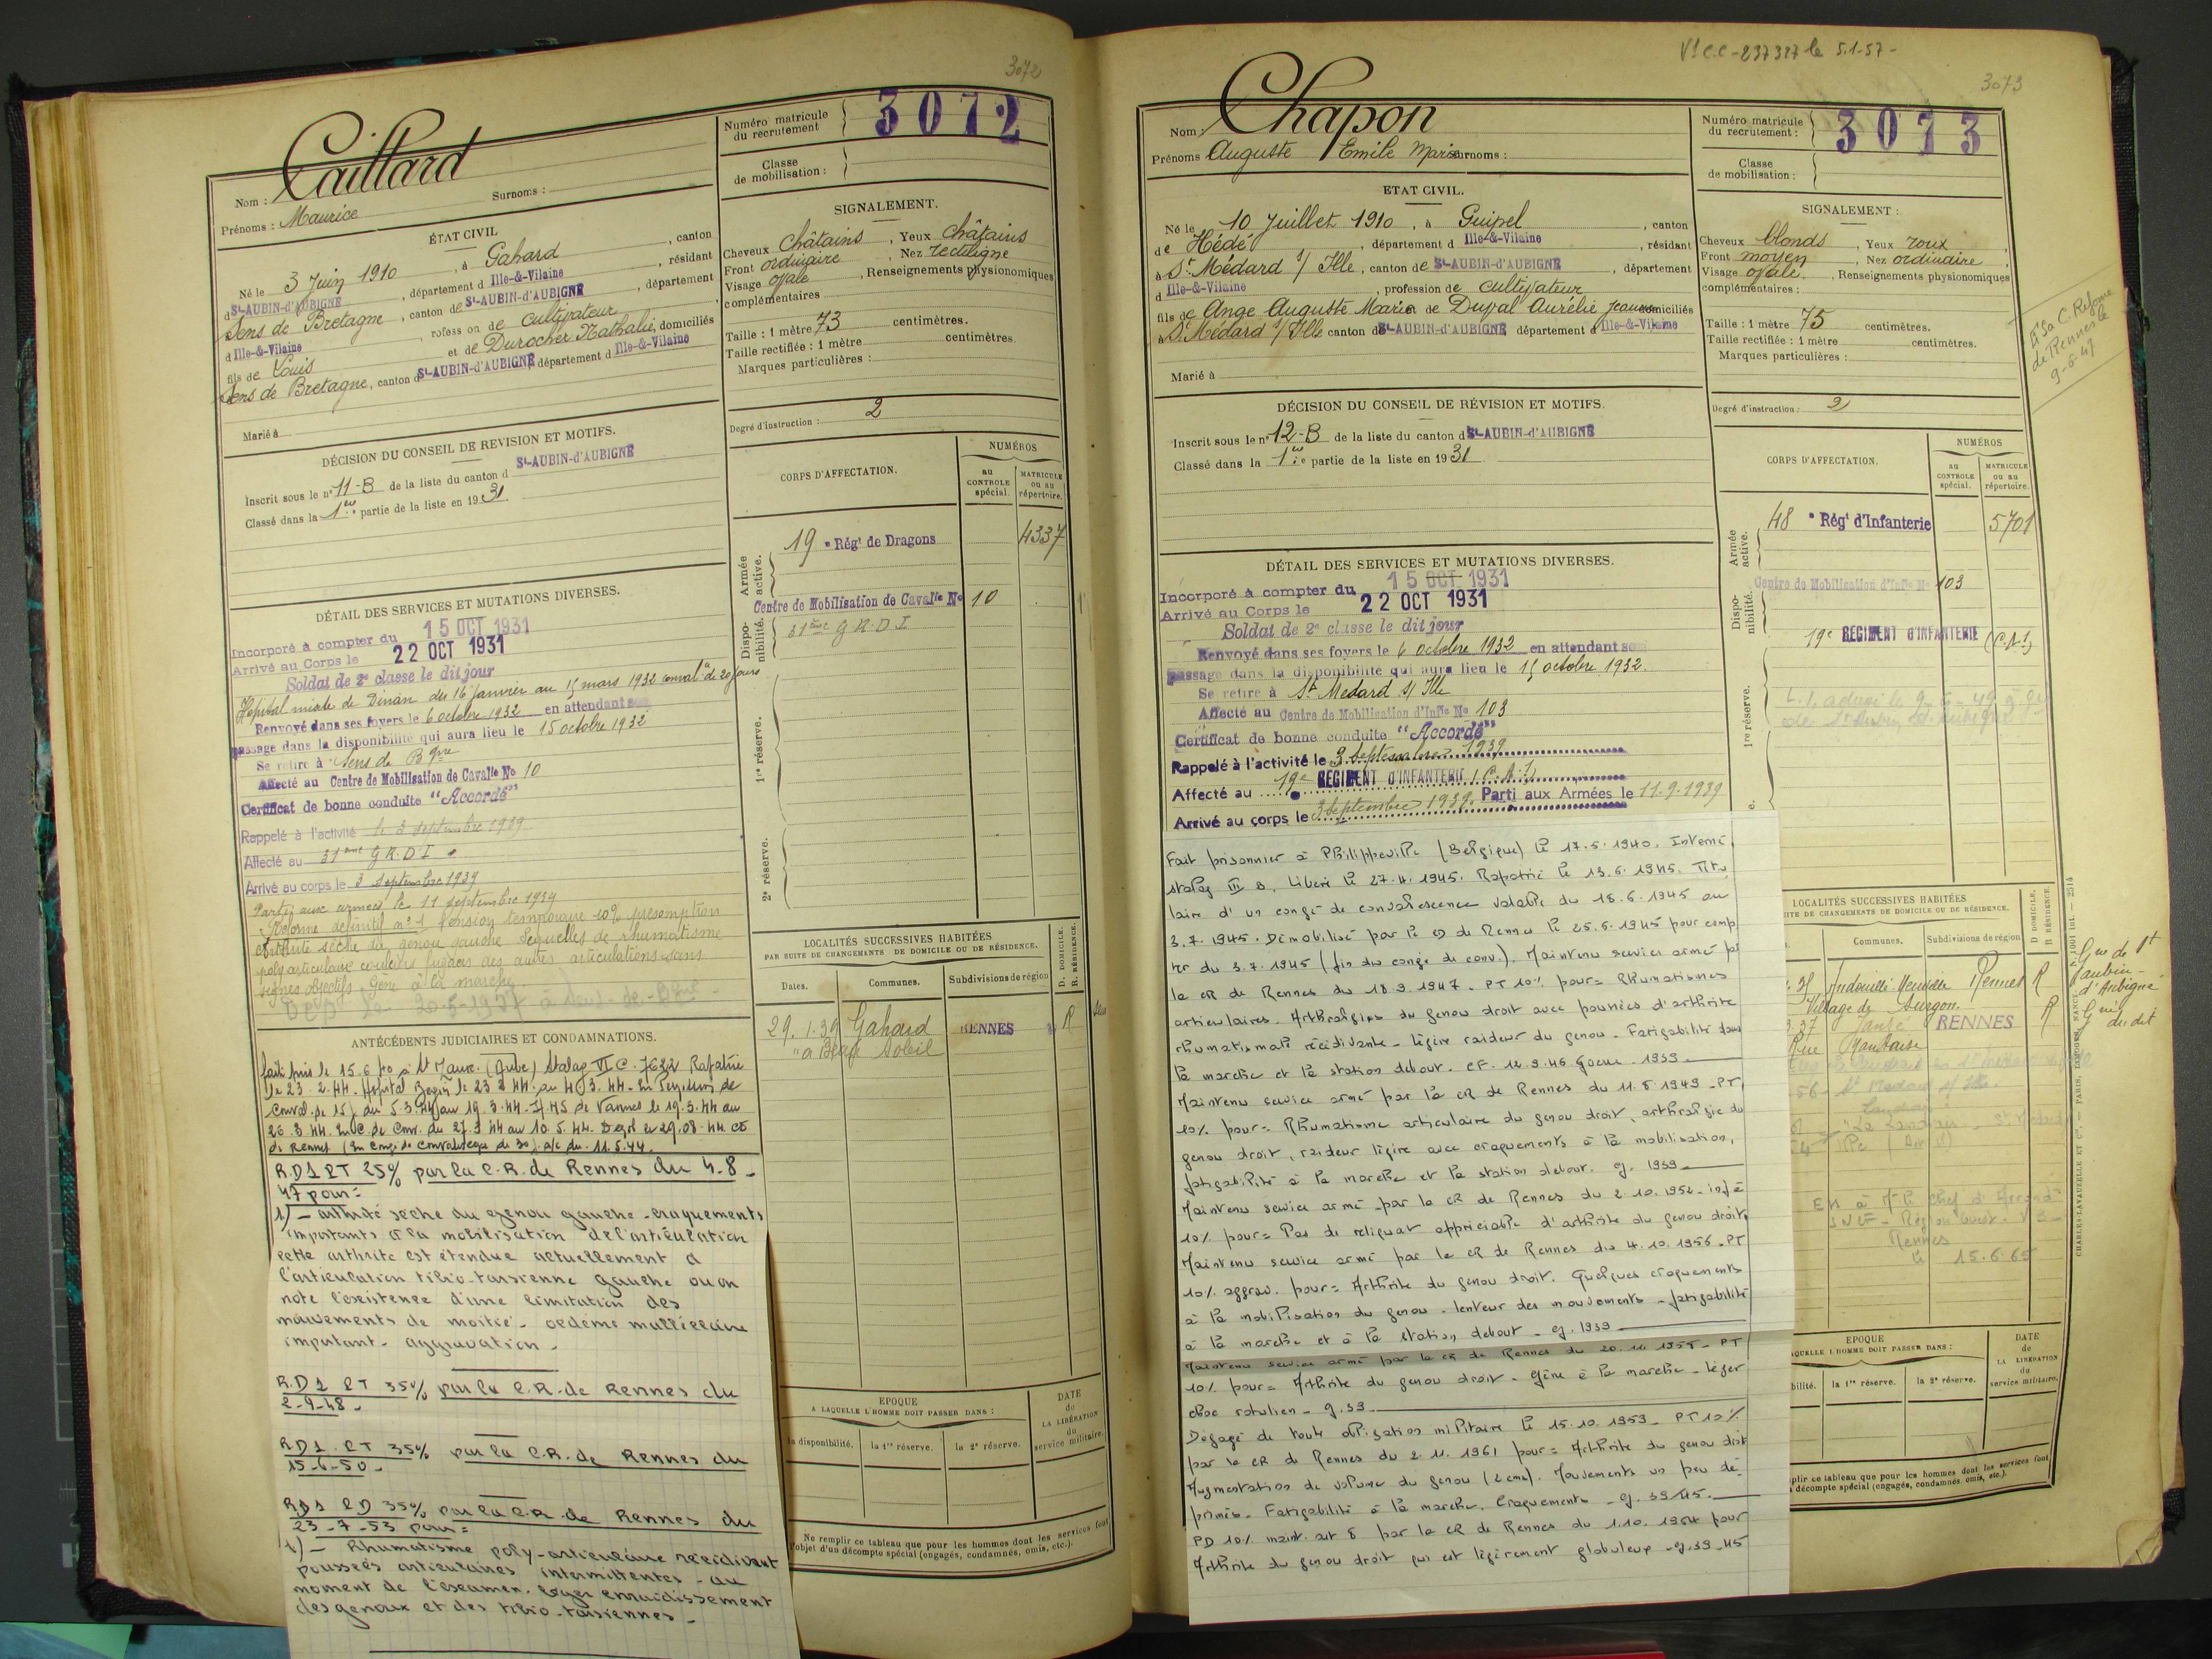 3072
Numéro matricule
du recrutement
3072
Classe
de mobilisation :
Nom : Caillard
Prénoms : Maurice Surnoms :
ÉTAT CIVIL
Né le 3 Juin 1910, à Gahard, canton
d St-AUBIN-d'AUBIGNÉ, département d Ille-&-Vilaine, résidant
Sens de Bretagne, canton de St-AUBIN-d'AUBIGNÉ, département
d Ille-&-Vilaine, profess on de cultivateur,
fils de Louis et de Durocher Nathalie, domiciliés
Sens de Bretagne, canton d St-AUBIN-d'AUBIGNÉ département d Ille-&-Vilaine
Marié à
SIGNALEMENT.
Cheveux Châtains, Yeux châtains
Front ordinaire, Nez rectiligne
Visage ovale, Renseignements physionomiques
complémentaires
Taille : 1 mètre 73 centimètres.
Taille rectifiée : 1 mètre centimètres.
Marques particulières :
Degré d'instruction : 2
DÉCISION DU CONSEIL DE REVISION ET MOTIFS.
Inscrit sous le n° 11-B de la liste du canton d St-AUBIN-d'AUBIGNÉ
Classé dans la 1re partie de la liste en 1931.
CORPS D'AFFECTATION.
NUMÉROS
au CONTROLE spécial.
MATRICULE ou au répertoire.
Armée active.
19e Régt de Dragons 4337
Dispo-nibilité.
Centre de Mobilisation de Cavalie No 10
31ème G.R.D.I
1re réserve.
2e réserve.
DÉTAIL DES SERVICES ET MUTATIONS DIVERSES.
Incorporé à compter du 15 OCT 1931
Arrivé au Corps le 22 OCT 1931
Soldat de 2e classe le dit jour
Hôpital mixte de Dinan du 16 janvier au 15 mars 1932 conval. de 20 jours
Renvoyé dans ses foyers le 6 octobre 1932 en attendant son
passage dans la disponibilité qui aura lieu le 15 octobre 1932
Se retire à Sens de Bgne
Affecté au Centre de Mobilisation de Cavalie No 10
Certificat de bonne conduite "Accordé"
Rappelé à l'activité le 3 septembre 1939
Affecté au 31ème G.R.D.I.
Arrivé au corps le 3 septembre 1939
Parti aux armées le 11 septembre 1939
Réforme définitif n° 1 Pension temporaire 10% présomption
arthrite sèche du genou gauche Séquelles de rhumatisme
poly articulaire douleurs fugaces des autres articulations sans
signes objectifs Gêne à la marche
ANTÉCÉDENTS JUDICIAIRES ET CONDAMNATIONS.
Fait pris le 15.6.40 à St Maure (Aube) Stalag VI C. 7622 Rapatrié
le 23.2.44. Hopital Begin le 23.2.44 au 4.3.44.
conval. de 15 j. du 5.3.44 au 19.3.44 de Vannes le 19.3.44 au
26.3.44. au 10.5.44.
de Rennes (En congé de convalescence de 30 j. a/c du 11.5.44.
R.D1 PT 25% par la C.R. de Rennes du 4.8-
47 pour =
1) - arthrite sèche du genou gauche - craquements
importants à la mobilisation de l'articulation
cette arthrite est étendue actuellement à
l'articulation tibio-tarsienne gauche ou on
note l'existence d'une limitation des
mouvements de moitié - oedème malléolaire
important - aggravation -
R.D1 PT 35% par la C.R. de Rennes du
2-9-48-
R.D1. PT 35% par la C.R. de Rennes du
15-6-50-
RD1 PD 35% par la C.R. de Rennes du
23-7-53 pour =
1) - Rhumatisme poly-articulaire récidivant
poussées articulaires intermittentes - au
moment de l'examen. léger enraidissement
des genoux et des tibio-tarsiennes -
LOCALITÉS SUCCESSIVES HABITÉES
PAR SUITE DE CHANGEMENTS DE DOMICILE OU DE RÉSIDENCE.
Dates. Communes. Subdivisions de région D. DOMICILE. R. RÉSIDENCE.
29.1.39 Gahard RENNES R
"à Beau Soleil
EPOQUE
A LAQUELLE L'HOMME DOIT PASSER DANS :
la disponibilité. la 1re réserve. la 2e réserve.
DATE de LA LIBÉRATION du service militaire.
Ne remplir ce tableau que pour les hommes dont les services font
l'objet d'un décompte spécial (engagés, condamnés, omis, etc.).
V1 C.C - 237317 le 5.1.57 -
3073
Numéro matricule
du recrutement :
3073
Classe
de mobilisation :
Nom : Chapon
Prénoms Auguste Emile Marie Surnoms :
ETAT CIVIL.
Né le 10 Juillet 1910, à Guipel, canton
de Hédé, département d Ille-&-Vilaine, résidant
à St Médard s/ Ille, canton de St-AUBIN-d'AUBIGNÉ, département
d Ille-&-Vilaine, profession de cultivateur
fils de Ange Auguste Marie et de Duval Aurélie Jeanne domiciliés
à St Médard s/ Ille canton d St-AUBIN-d'AUBIGNÉ département d Ille-&-Vilaine
Marié à
SIGNALEMENT :
Cheveux blonds, Yeux roux,
Front moyen, Nez ordinaire,
Visage ovale, Renseignements physionomiques
complémentaires :
Taille : 1 mètre 75 centimètres.
Taille rectifiée : 1 mètre centimètres.
Marques particulières :
Degré d'instruction : 2
à la C. Réforme
de Rennes le
9-6-47
DÉCISION DU CONSEIL DE RÉVISION ET MOTIFS.
Inscrit sous le n° 12-B de la liste du canton d St-AUBIN-d'AUBIGNÉ
Classé dans la 1re partie de la liste en 1931.
CORPS D'AFFECTATION.
NUMÉROS
au CONTROLE spécial.
MATRICULE ou au répertoire.
Armée active.
48e Régt d'Infanterie 5701
Dispo-nibilité.
Centre de Mobilisation d'Infie No 103
19e REGIMENT D'INFANTERIE (C.A.1)
1re réserve.
DÉTAIL DES SERVICES ET MUTATIONS DIVERSES.
Incorporé à compter du 15 OCT 1931
Arrivé au Corps le 22 OCT 1931
Soldat de 2e classe le dit jour
Renvoyé dans ses foyers le 6 octobre 1932 en attendant son
passage dans la disponibilité qui aura lieu le 15 octobre 1932.
Se retire à St Medard s/ Ille
Affecté au Centre de Mobilisation d'Infie No 103
Certificat de bonne conduite "Accordé"
Rappelé à l'activité le 3 septembre 1939
Affecté au 19e REGIMENT D'INFANTERIE (C.A.1)
Arrivé au corps le 3 septembre 1939. Parti aux Armées le 11.9.1939
Fait prisonnier à Philippeville (Belgique) le 17.5.1940. Interné
stalag III B. Libéré le 27.4.1945. Rapatrié le 13.6.1945. Titu-
laire d'un congé de convalescence valable du 18.6.1945 au
3.7.1945. Démobilisé par le CD de Rennes le 25.6.1945 pour comp
ter du 3.7.1945 (fin du congé de conv.). Maintenu service armé par
la CR de Rennes du 18.9.1947 - PT 10% pour = Rhumatismes
articulaires - Arthralgies du genou droit avec poussées d'arthrite
rhumatismale récidivante - légère raideur du genou - Fatigabilité dans
la marche et la station debout. CF. 12.9.46 Guerre 1939
Maintenu service armé par la CR de Rennes du 11.5.1949 - PT
10% pour = Rhumatisme articulaire du genou droit, arthralgie du
genou droit, raideur légère avec craquements à la mobilisation,
fatigabilité à la marche et la station debout. g. 1939
Maintenu service armé par la CR de Rennes du 2.10.1952 - infé
10% pour = Pas de reliquat appréciable d'arthrite du genou droit.
Maintenu service armé par la CR de Rennes du 4.10.1956 - PT
10% aggrav. pour = Arthrite du genou droit. Quelques craquements
à la mobilisation du genou - lenteur des mouvements - fatigabilité
à la marche et à la station debout - g. 1939
Maintenu service armé par la CR de Rennes du 20.11 - PT
10% pour = Arthrite du genou droit - Gêne à la marche - léger
choc rotulien - g. 39
Dégagé de toute obligation militaire le 15.10.1959 - PT 10%
par la CR de Rennes du 2.11.1961 pour = Arthrite du genou droit
Augmentation de volume du genou (2 cms). Mouvements un peu dé-
primés - Fatigabilité à la marche. Craquements - g. 39/45.
PD 10% maint. art 8 par la CR de Rennes du 1.10.1964 pour
Arthrite du genou droit qui est légèrement globuleux - g. 39-45
LOCALITÉS SUCCESSIVES HABITÉES
ITE DE CHANGEMENTS DE DOMICILE OU DE RÉSIDENCE.
Communes. Subdivisions de région D DOMICILE. R RÉSIDENCE.
Andouillé Neuville Rennes R
Village de Surgon
37 Janzé RENNES R
Rue Nantaise
Gne de St
Aubin-
d'Aubigné
Gne
du dit
56 - St Medard s/ Ille
Rennes
le 15.6.65
EPOQUE
AQUELLE L'HOMME DOIT PASSER DANS :
bilité. la 1re réserve. la 2e réserve.
DATE de LA LIBÉRATION du service militaire.
plir ce tableau que pour les hommes dont les services font
décompte spécial (engagés, condamnés, omis, etc.).
CHARLES-LAVAUZELLE ET Cie. — PARIS, LIMOGES, NANCY